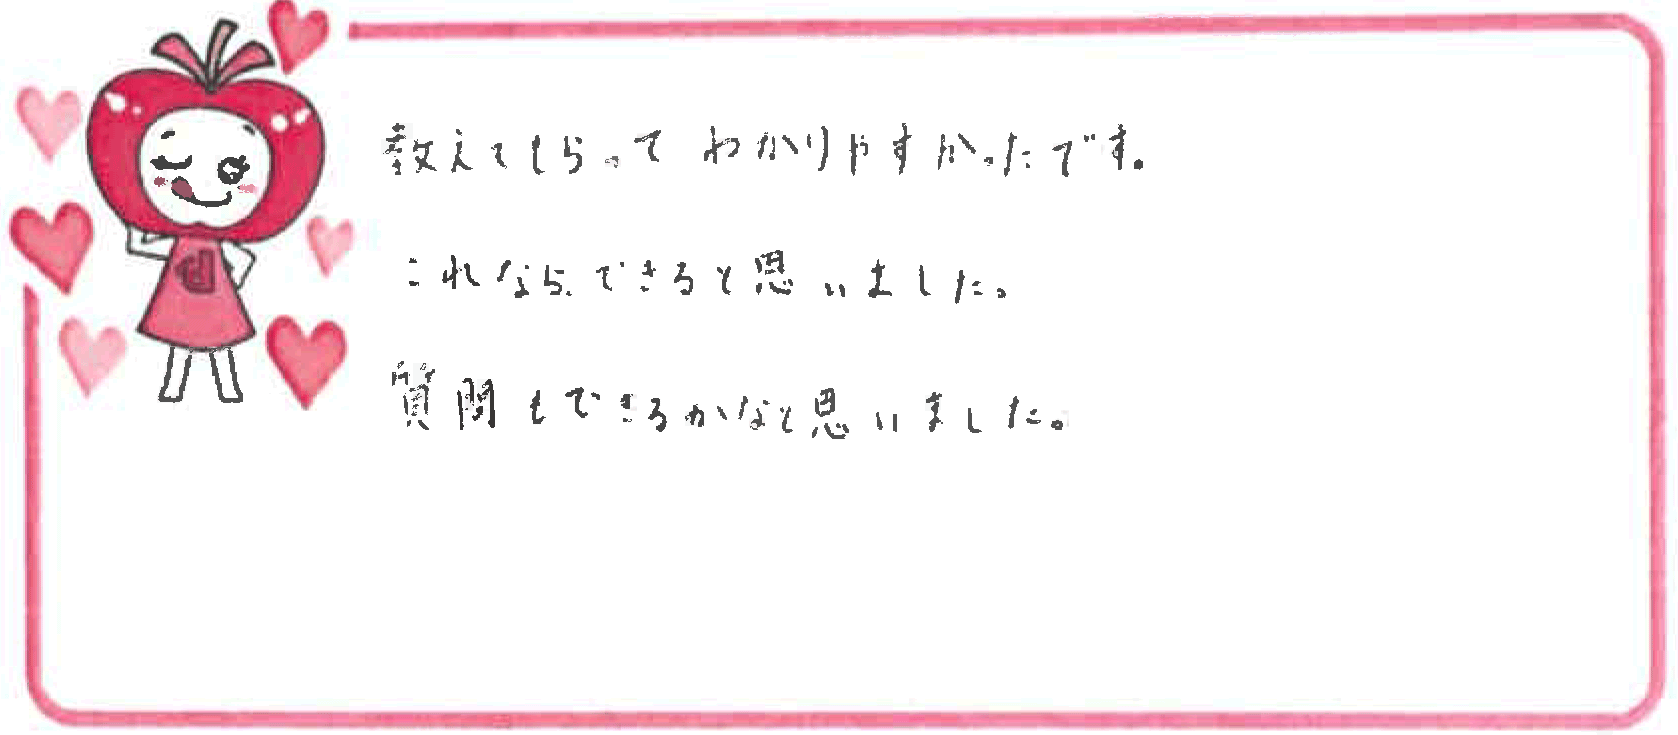 教えてもらって わかりやすかったです。
これなら、できると思いました。
質問もできるかなと思いました。